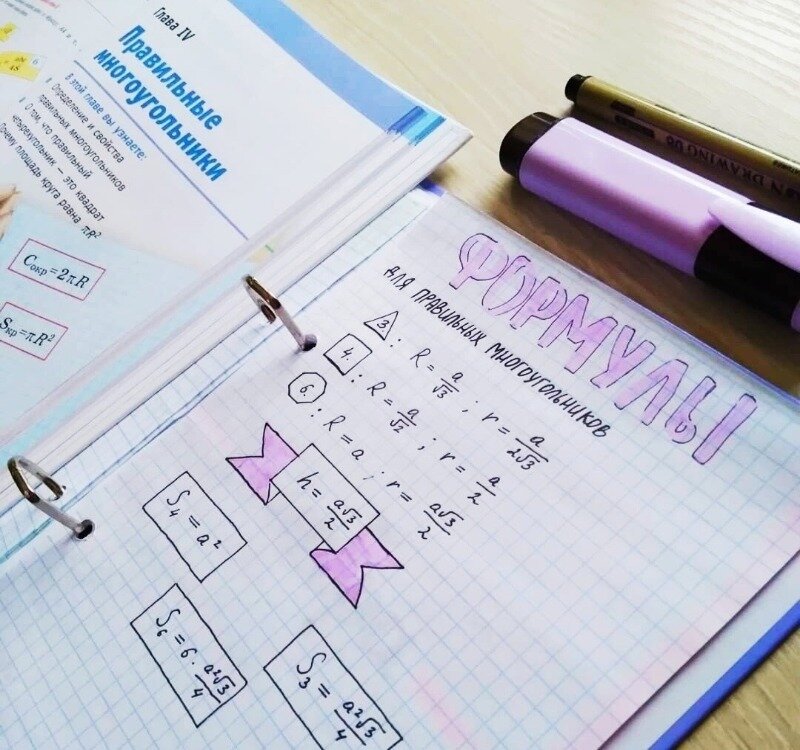 Глава IV
Правильные
многоугольники
В этой главе вы узнаете:
Определение и свойства
правильных многоугольников
О том, что правильный
четырёхугольник — это квадрат
Почему площадь круга равна πR²
Cокр = 2πR
Sкр = πR²
ФОРМУЛЫ
ДЛЯ ПРАВИЛЬНЫХ МНОГОУГОЛЬНИКОВ
3. : R = a/√3 ; r = a/2√3
4. : R = a/√2 ; r = a/2
6. : R = a ; r = a√3/2
h = a√3/2
S₄ = a²
S₆ = 6 · a²√3/4
S₃ = a²√3/4
DRAWING